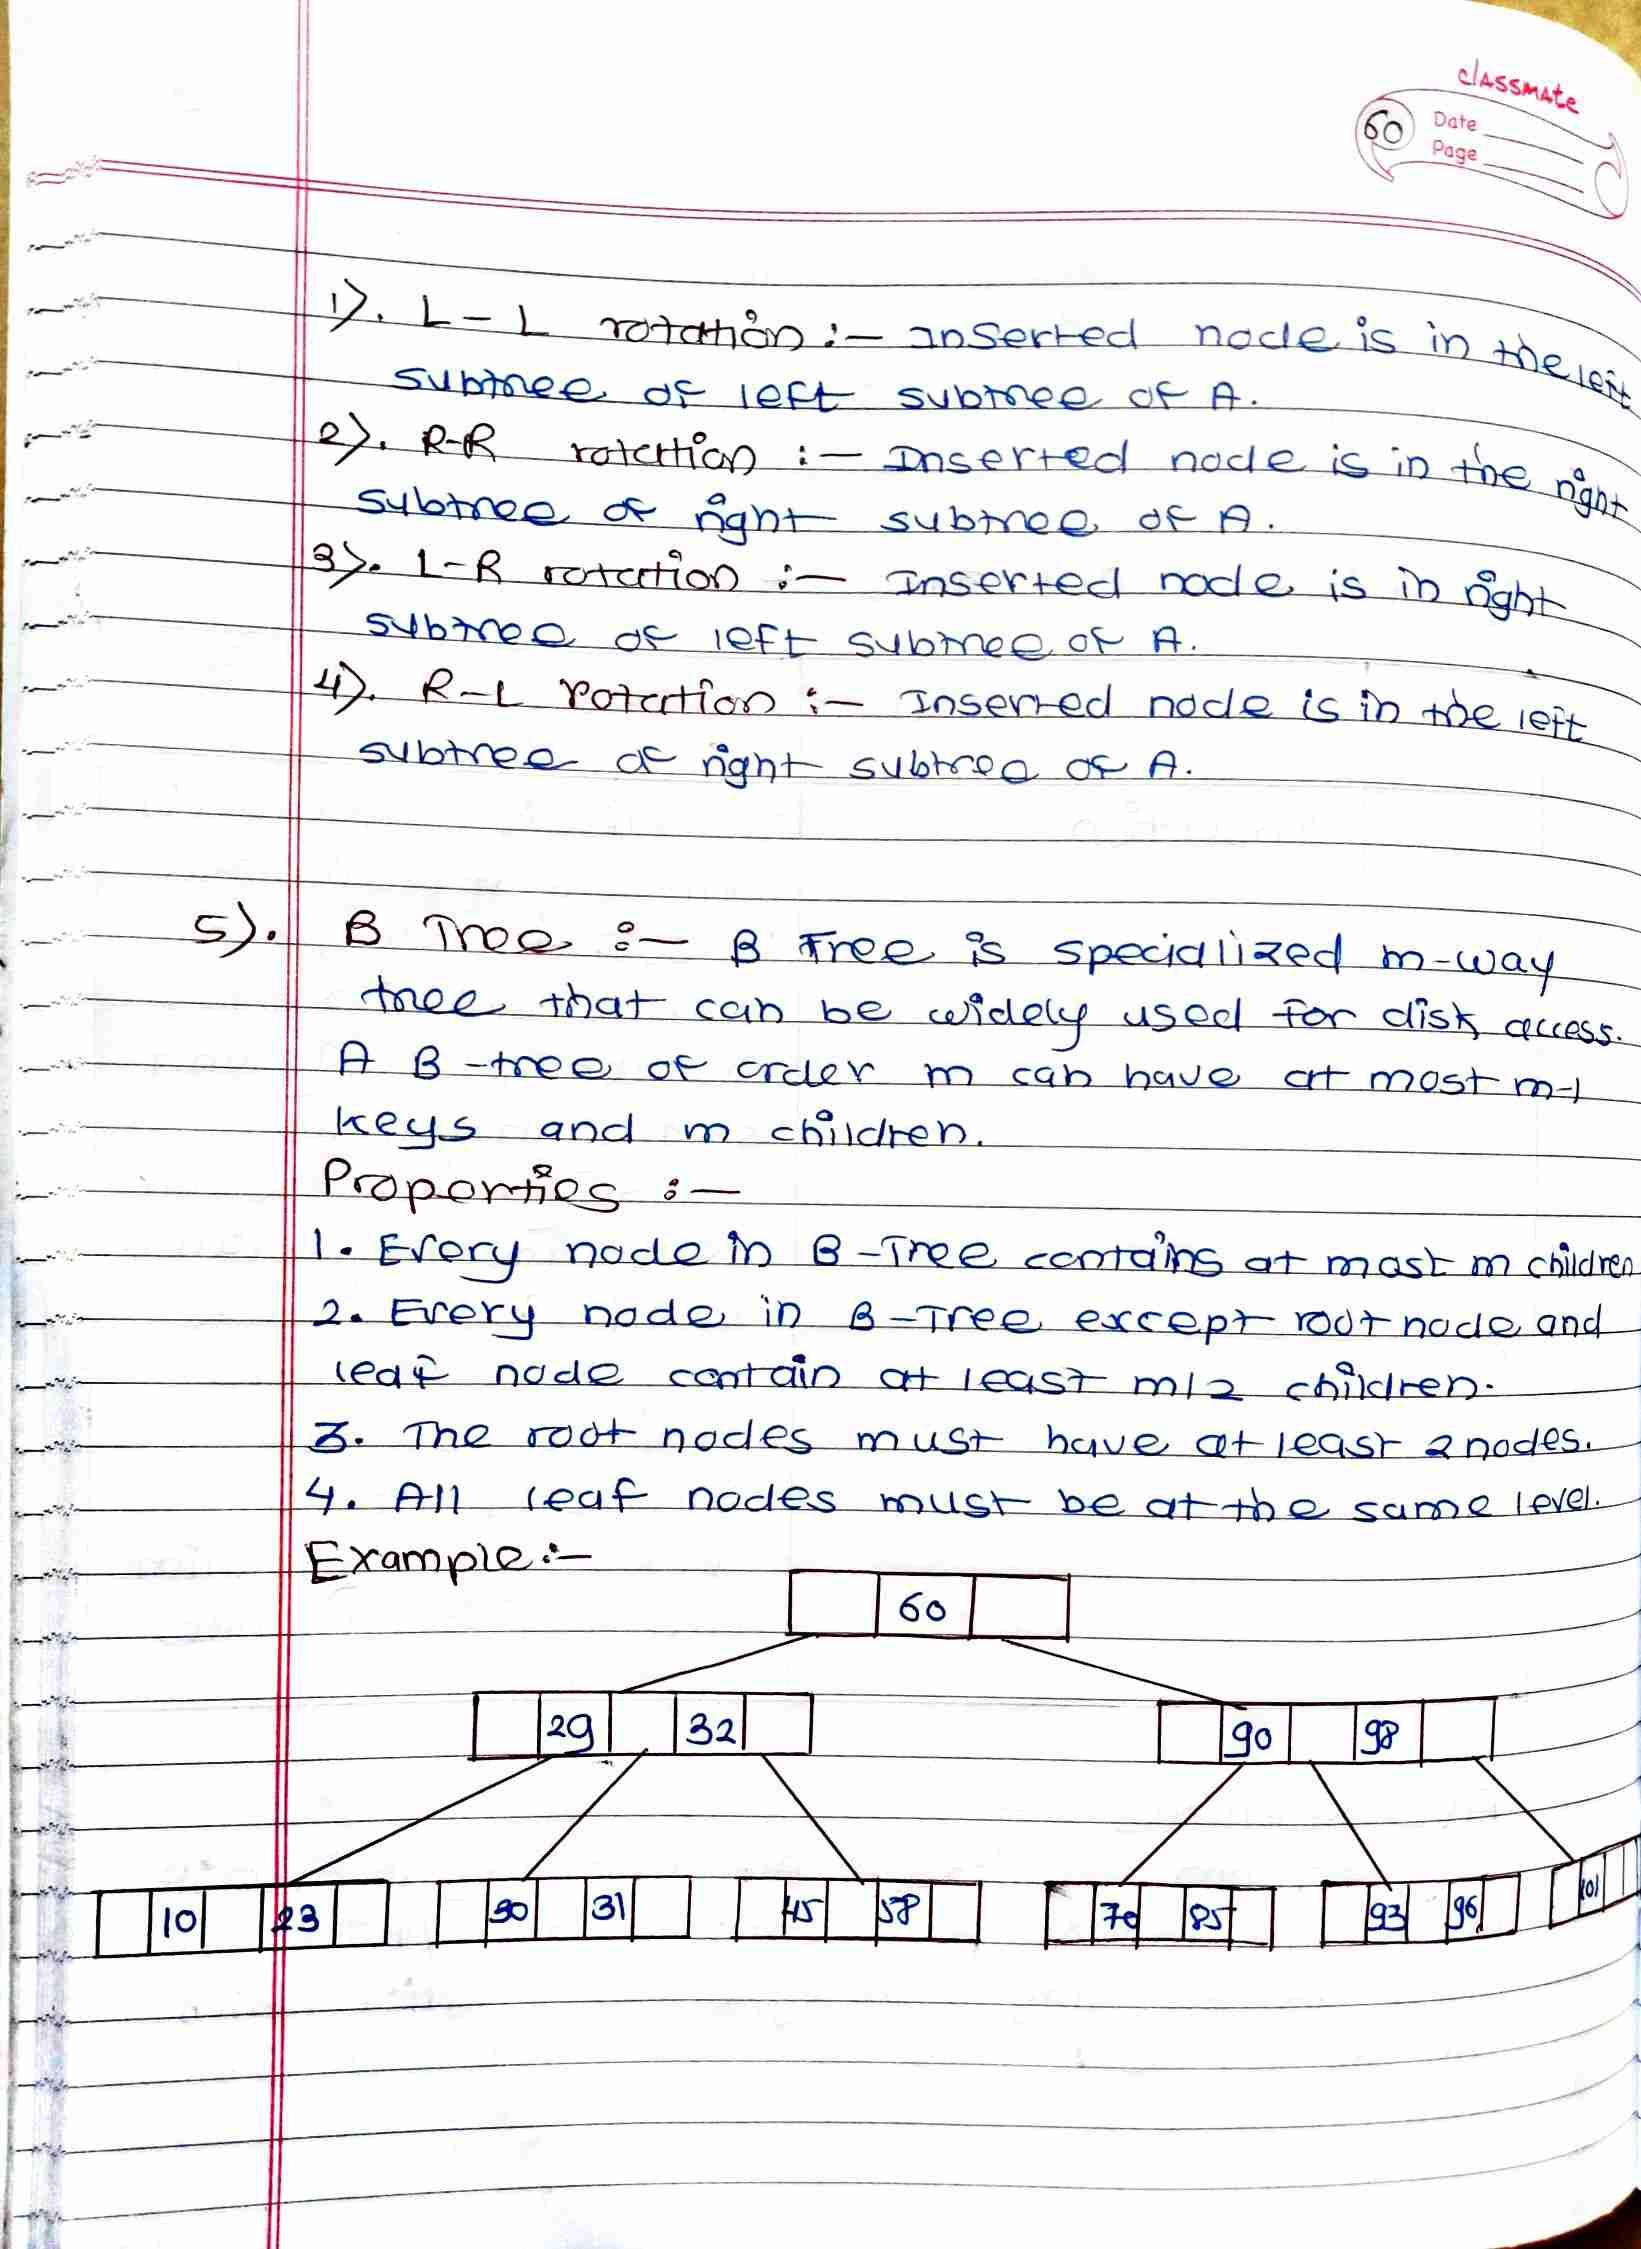 classmate
60
Date
Page
1). L-L rotation :- Inserted node is in the left
subtree of left subtree of A.
2). R-R rotation :- Inserted node is in the right
subtree of right subtree of A.
3). L-R rotation :- Inserted node is in right
subtree of left subtree of A.
4). R-L rotation :- Inserted node is in the left
subtree of right subtree of A.
5). B Tree :- B Tree is specialized m-way
tree that can be widely used for disk access.
A B-tree of order m can have at most m-1
keys and m children.
Properties :-
1. Every node in B-Tree contains at most m children
2. Every node in B-Tree except root node and
leaf node contain at least m/2 children.
3. The root nodes must have at least 2 nodes.
4. All leaf nodes must be at the same level.
Example:-
60
29 32 90 98
10 23 30 31 45 58 70 85 93 96 101